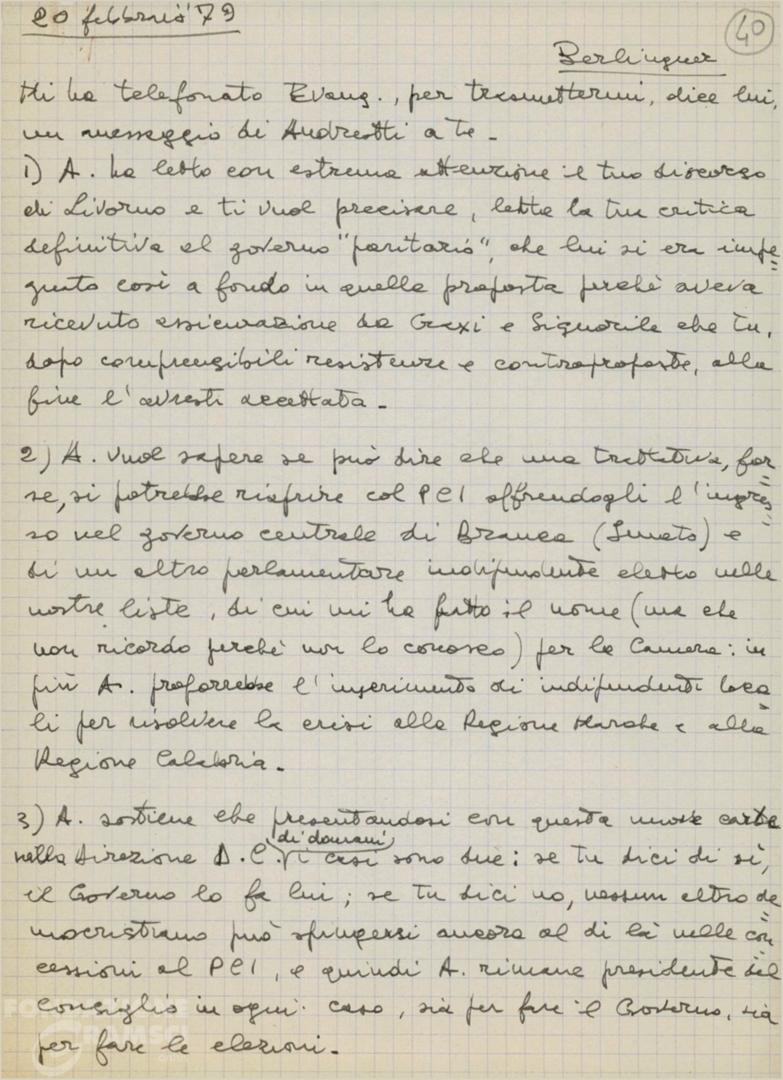 20 febbraio '79
40
Berlinguer
Mi ha telefonato Evang., per trasmettermi, dice lui,
un messaggio di Andreotti a te -
1) A. ha letto con estrema attenzione il tuo discorso
di Livorno e ti vuol precisare, letta la tua critica
definitiva al governo "paritario", che lui si era impe=
gnato così a fondo in quella proposta perchè aveva
ricevuto assicurazione da Craxi e Signorile che tu,
dopo comprensibili resistenze e controproposte, alla
fine l'avresti accettata -
2) A. vuol sapere se può dire che una trattativa, for=
se, si potrebbe riaprire col PCI offrendogli l'ingres=
so nel governo centrale di Branca (Senato) e
di un altro parlamentare indipendente eletto nelle
nostre liste, di cui mi ha fatto il nome (ma che
non ricordo perchè non lo conosco) per la Camera: in
più A. proporrebbe l'inserimento di indipendenti loca=
li per risolvere la crisi alla Regione Marche e alla
Regione Calabria -
3) A. sostiene che presentandosi con questa nuova carta
nella Direzione D.C. di domani i casi sono due: se tu dici di sì,
il Governo lo fa lui; se tu dici no, nessun altro de=
mocristiano può spingersi ancora al di là nelle con=
cessioni al PCI, e quindi A. rimane presidente del
Consiglio in ogni caso, sia per fare il Governo, sia
per fare le elezioni -